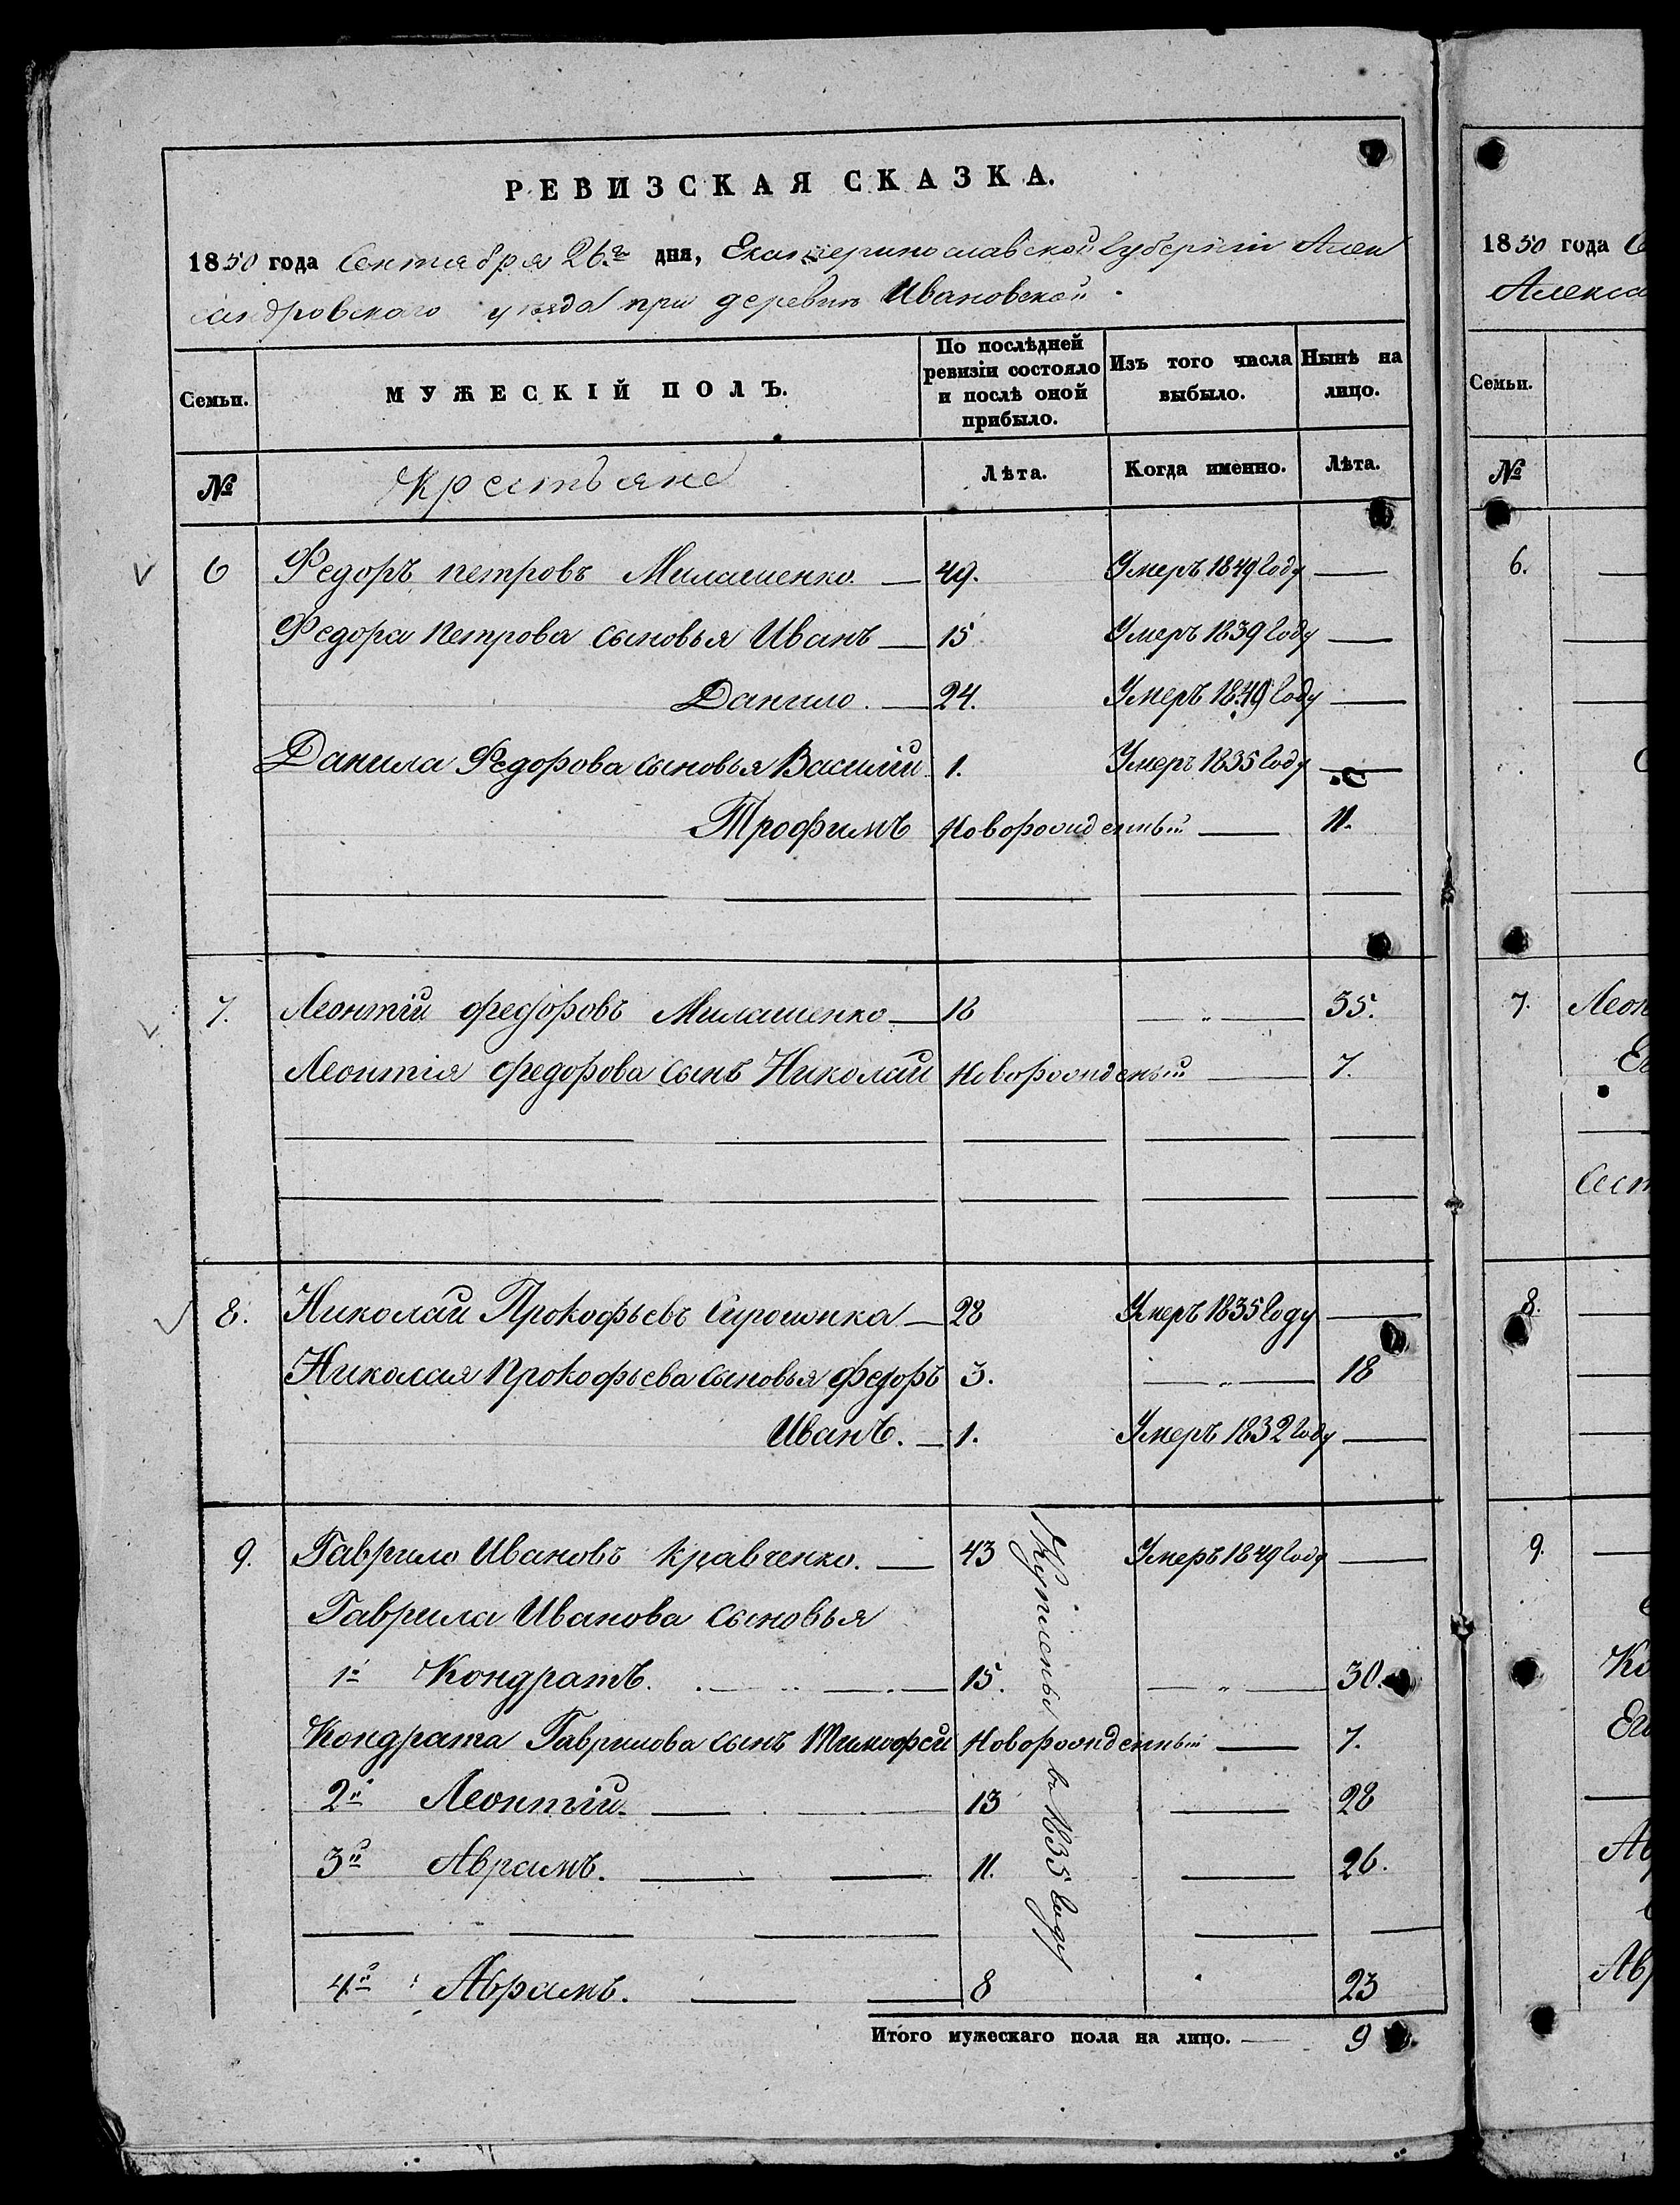 РЕВИЗСКАЯ СКАЗКА.
1850 года Сентября 26го дня, Екатеринославской Губерніи Алек
сандровскаго уѣзда при деревнѣ Ивановской.
Семьи. МУЖЕСКІЙ ПОЛЪ. По послѣдней ревизіи состояло и послѣ оной прибыло. Изъ того числа выбыло. Нынѣ на лицо.
№ Крестьяне Лѣта. Когда именно. Лѣта.
6 Федоръ петровъ Милашенко. — 49. Умеръ 1849 году —
Федора Петрова сыновья Иванъ — 15 Умеръ 1839 году —
Данило. — 24. Умеръ 1849 году —
Данила Федорова сыновья Василій. 1. Умеръ 1835 году —
Трофимъ Новорожденный — 11.
7. Леонтій федоровъ Милашенко — 18 — „ — 35.
Леонтія федорова сынъ Николай Новорожденый — 7.
8. Николай Прокофьевъ — 28 Умеръ 1835 году —
Николая Прокофьева сыновья федоръ 3. — „ — 18
Иванъ. — 1. Умеръ 1832 году —
9. Гаврило Ивановъ Кравченко. — 43 Умеръ 1849 году —
Гаврила Иванова сыновья
1й Кондратъ. — 15. — „ — 30.
Кондрата Гаврилова сынъ Тимофей Новорожденный — 7.
2й Леонтій. — 13 — 28
3й Аврамъ. — — 11. — 26.
4й Аврамъ. — — 8 23
Купленны въ 1835 году
Итого мужескаго пола на лицо. — 9
1850 года С
Алекса
Семьи.
№
6.
7. Леон
Ег
Сест
8.
9.
Ко
Его
Ав
Авр